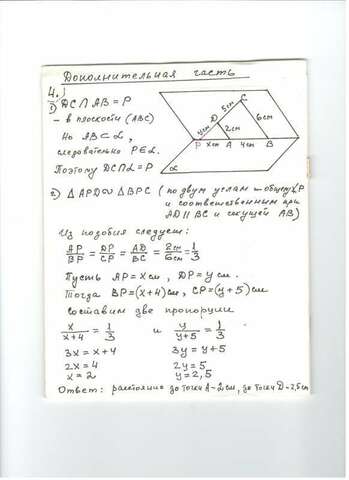 Дополнительная часть
4.)
1) DC ∩ AB = P
- в плоскости (ABC)
Но AB ⊂ α,
следовательно P ∈ α.
Поэтому DC ∩ α = P
C
5см
D
y см
2см
6см
P
x см
A
4см
B
α
2) △ APD ∾ △ BPC (по двум углам – общему ∠P
и соответственным при
AD ∥ BC и секущей AB)
Из подобия следует:
AP/BP = DP/CP = AD/BC = 2см/6см = 1/3
Пусть AP = x см, DP = y см.
Тогда BP = (x+4) см, CP = (y+5) см
Составим две пропорции
x/(x+4) = 1/3 и y/(y+5) = 1/3
3x = x+4 3y = y+5
2x = 4 2y = 5
x = 2 y = 2,5
Ответ: расстояние до точки A – 2 см, до точки D – 2,5 см